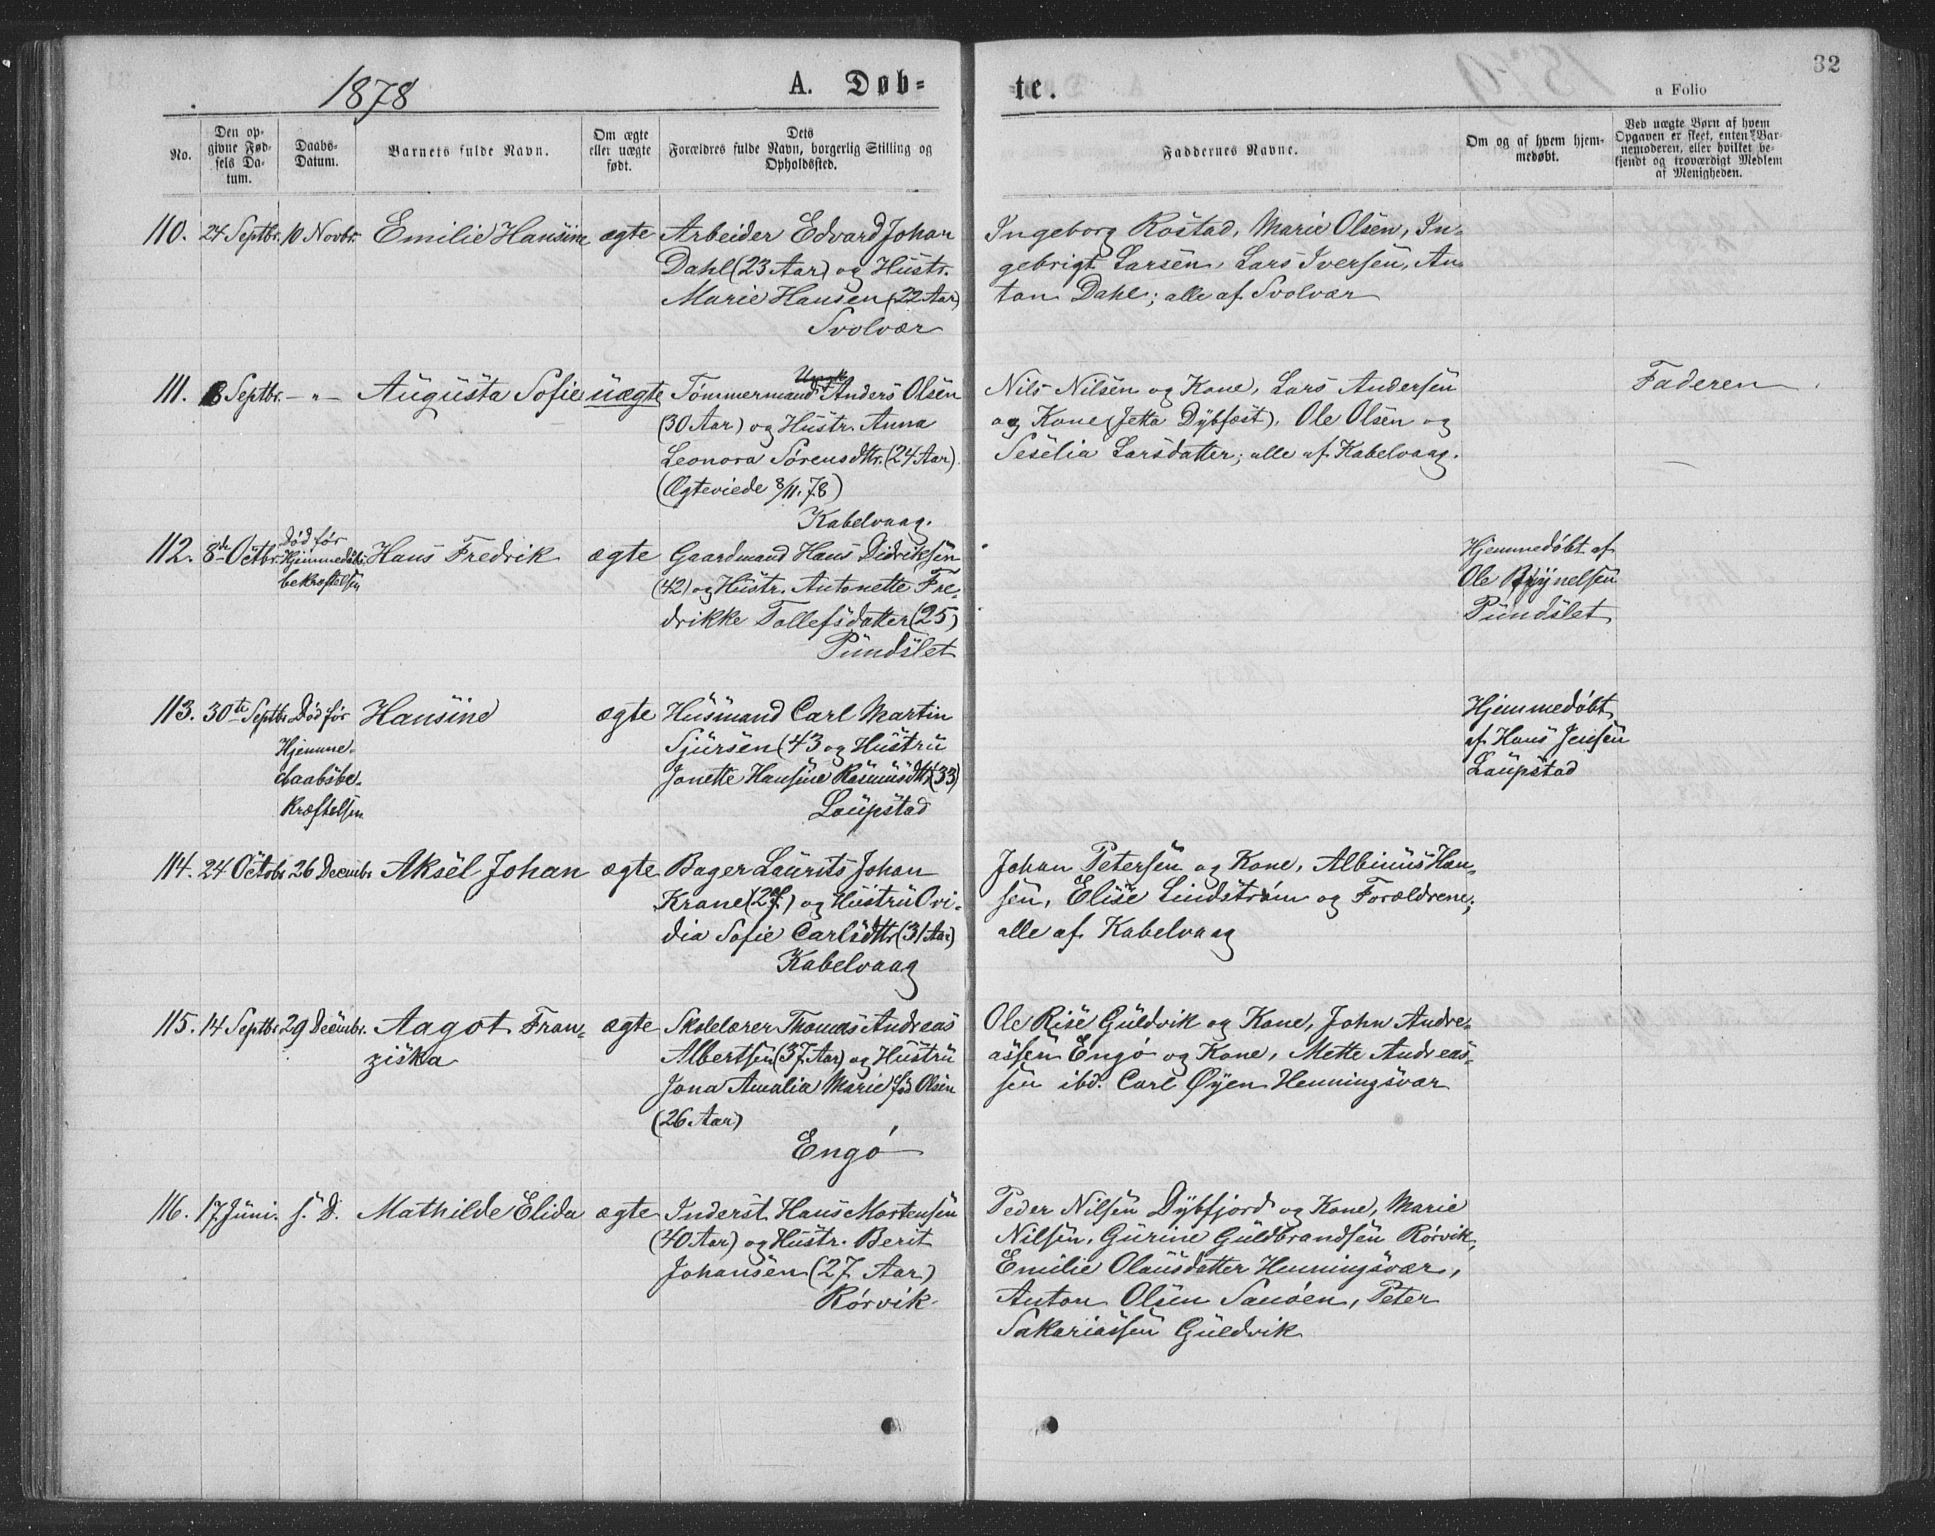 1878
A. Døb=
te.
a Folio
32
No.
Den op-
givne Fød-
sels Da-
tum.
Daabs-
Datum.
Barnets fulde Navn.
Om ægte
eller uægte
født.
Dets
Forældres fulde Navn, borgerlig Stilling og
Opholdssted.
Faddernes Navne.
Om og af hvem hjem-
medøbt.
Ved uægte Børn af hvem
Opgaven er skeet, enten Bar-
nemoderen, eller hvilket be-
kjendt og troværdigt Medlem
af Menigheden.
110. 24 Septbr. 10 Novbr. Emilie Hansine ægte Arbeider Edvard Johan
Dahl (23 Aar) og Hustr.
Marie Hansen (22 Aar)
Svolvær
Ingeborg Rostad, Marie Olsen, In-
gebrigt Larsen, Lars Iversen, An-
ton Dahl; alle af Svolvær
111. 8 Septbr. - " - Augusta Sofie uægte Tømmermand Anders Olsen
(30 Aar) og Hustr. Anna
Leonora Sørensdttr. (24 Aar).
(Ægteviede 8/11. 78)
Kabelvaag.
Nils Nilsen og Kone, Lars Andersen
og Kone (Jetta Dybfæst), Ole Olsen og
Seselia Larsdatter; alle af Kabelvaag.
Faderen
112. 8de Octbr. Død før
Hjemmedøbs-
bekræftelsen
Hans Fredrik ægte Gaardmand Hans Didriksen
(42) og Hustr. Antonette Fre-
drikke Tollefsdatter (25)
Pundslet
Hjemmedøbt af
Ole Brynelsen
Pundslet
113. 30te Septbr. Død før
Hjemme-
daabsbe-
kræftelsen
Hansine ægte Husmand Carl Martin
Sjursen (43 og Hustru
Jonette Hansine Rasmusdttr (33)
Laupstad
Hjemmedøbt
af Hans Jensen
Laupstad
114. 24 Octobr. 26 Decembr. Aksel Johan ægte Bager Laurits Johan
Krane (27) og Hustru Ovi-
dia Sofie Carlsdttr (31 Aar)
Kabelvaag
Johan Petersen og Kone, Albinus Han-
sen, Elise Lindstrøm og Forældrene;
alle af Kabelvaag
115. 14 Septbr. 29 Decembr. Aagot Fran-
ziska
ægte Skolelærer Thomas Andreas
Albertsen (37 Aar) og Hustru
Jona Amalia Marie fød Olsen
(26 Aar)
Engø
Ole Rise Guldvik og Kone, John Andre-
assen Engø og Kone, Mette Andreas-
sen ibd. Carl Øyen Henningsvær
116. 17 Juni. s. D. Mathilde Elida ægte Inderst Hans Mortensen
(40 Aar) og Hustr. Berit
Johansen (27 Aar)
Rørvik.
Peder Nilsen Dybfjord og Kone, Marie
Nilsen, Gurine Guldbrandsen Rørvik,
Emilie Olausdatter Henningsvær,
Anton Olsen Sanøen, Peter
Sakariassen Guldvik